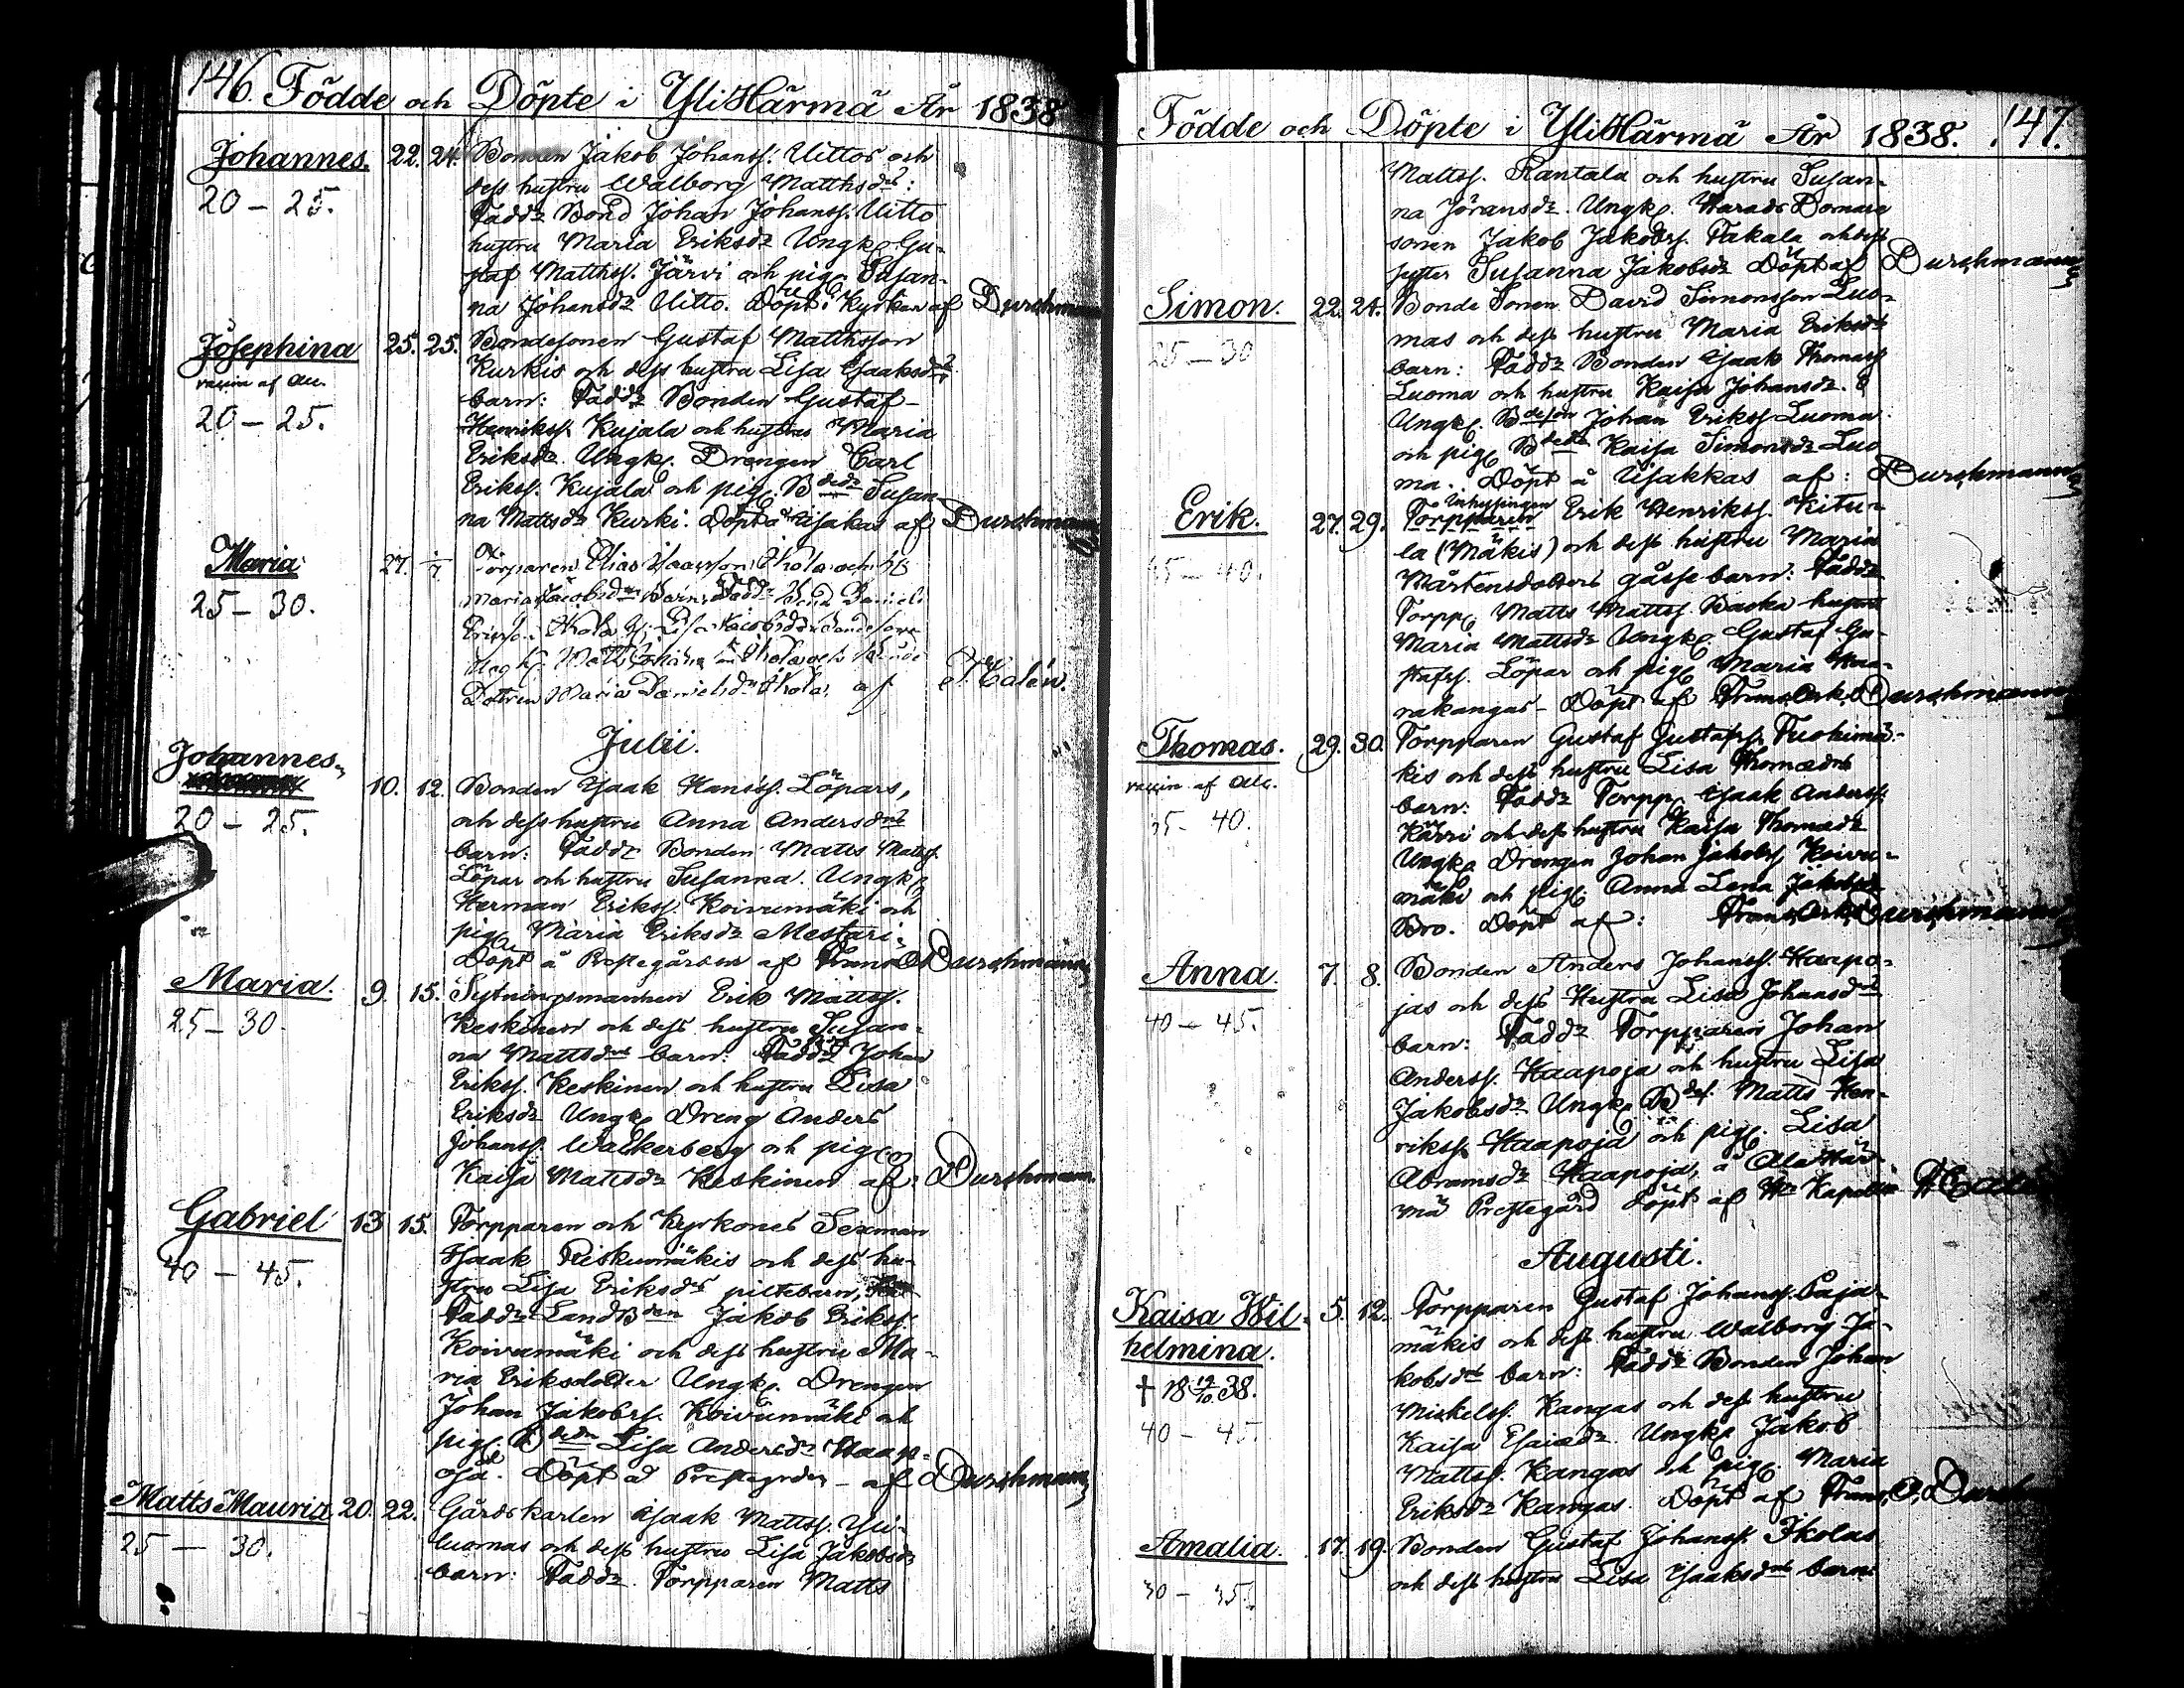 146. Födde och Döpte i YliHärmä År 1838
Johannes. 22. 24. Bonden Jakob Johanss. Uittos och
20 – 25. dess hustru Walborg Matthsdr:
Fadd: Bond Johan Johanss. Uitto
hustru Maria Eriksdr Ungk. Gu-
staf Matthss. Järvi och pig. Susan-
na Johansdr Uitto. Döpt i Kyrkan af Durchman
Josephina 25. 25. Bondesonen Gustaf Matthsson
vaccin af Alc. Kurkis och dess hustru Lisa Isaaksdrs
20 – 25. barn: Fadd: Bonden Gustaf
Henrikss. Kujala och hustru Maria
Eriksdr. Ungk. Drengen Carl
Erikss. Kujala och pig. Bdedr Susan-
na Mattsdr Kurki. Döpt å af Durchman
Maria 27. Torparen Elias Isacsson Ikola och
25 – 30. Maria Jacobsdr Barn Fadd:
Ikola
Ikola och
Dotren Maria Danielsdr Ikola, af Calén.
Julii.
Johannes 10. 12. Bonden Isaak Hanss. Löpars,
20 – 25. och dess hustru Anna Andersdrs
barn: Fadd: Bonden Matts Mattss.
Löpar och hustru Susanna. Ungk.
Herman Erikss. Koivumäki och
pig. Maria Eriksdr Mestari,
Döpt å Prestegården af Frans O Durchman
Maria. 9. 15. Sytningsmannen Erik Mattss.
25 – 30. Keskinen och dess hustru Susan-
na Mattsdrs barn: Fadd: Johan
Erikss. Keskinen och hustru Lisa
Eriksdr Ungk. Dreng Anders
Johanss. Walkerberg och pig.
Kaisa Mattsdr Keskinen af: Durchman.
Gabriel 13 15. Torpparen och Kyrkones Sexman
40 – 45. Isaak Riskumäkis och dess hu-
stru Lisa Eriksdrs piltebarn,
Fadd: LandBden Jakob Erikss.
Koivumäki och dess hustru Ma-
ria Eriksdotter Ungk. Drengen
Johan Jakobss. Koivumäki och
pig. Bdedr Lisa Andersdr Haap-
oja. Döpt å Prestegården – af Durchman
Matts Mauriz 20. 22. Gårdskarlen Isaak Mattss. Yli-
25 – 30. luomas och dess hustru Lisa Jakobsdr
barn: Fadd: Torpparen Matts
Födde och Döpte i YliHärmä År 1838. 147.
Mattss. Rantala och hustru Susan-
na Jöransdr. Ungk. Härads Domare
sonen Jakob Jakobss. Takala och dess
syster Susanna Jakobsdr Döpt af Durchman
Simon. 22. 24. Bonde Sonen David Simonsson Luo-
25 – 30 mas och dess hustru Maria Eriksdrs
barn: Fadd: Bonden Isaak Thomass
Luoma och hustru Kaisa Johansdr.
Ungk. Bdeson Johan Erikss Luoma
och pig. Bdedr Kaisa Simonsdr Luo
ma. Döpt å af: Durchman
Erik. 27. 29. Torpparen Inhysingen Erik Henrikss. Kitu-
35 – 40. la (Mäkis) och dess hustru Maria
Mårtensdotters gosse barn: Fadd:
Torpp. Matts Mattss. Backa hustru
Maria Mattsdr Ungk. Gustaf Gu-
stafss. Löpar och pig. Maria Haa-
rakangas – Döpt af Frans Osk. Durchman
Thomas. 29. 30. Torpparen Gustaf Gustafss.
vaccin af Alc. kis och dess hustru Lisa Thomasdrs
35 – 40. barn: Fadd: Torpp. Isaak Anderss:
Karri och dess hustru Kaisa Thomasdr
Ungk. Drengen Johan Jakobss Koivu-
mäki och pig. Anna Lena Jakobsdr
Bro. Döpt af: Frans Osk Durchman
Anna. 7. 8. Bonden Anders Johanss. Haapo-
40 – 45. jas och dess Hustru Lisa Johansdrs
barn: Fadd: Torpparen Johan
Anderss. Haapoja och hustru Lisa
Jakobsdr Ungk. Bdes. Matts Hen-
rikss. Haapoja och pig. Lisa
Abramsdr Haapoja, å Ala Här-
mä Prestegård döpt af Hr Kapellan
Augusti.
Kaisa Wil- 5. 12. Torpparen Gustaf Johanss. Paja-
helmina. mäkis och dess hustru Walborg Ja-
† 18 19/10 38. kobsdrs barn: Fadd: Bonden Johan
40 – 45. Mickelss. Kangas och dess hustru
Kaisa Esaiædr. Ungk. Jakob
Mattss. Kangas och pig. Maria
Eriksdr Kangas. Döpt af Frans O. Durchman
Amalia. 17. 19. Bonden Gustaf Johanss. Ikolas
30 – 35. och dess hustru Lisa Isaaksdrs barn: